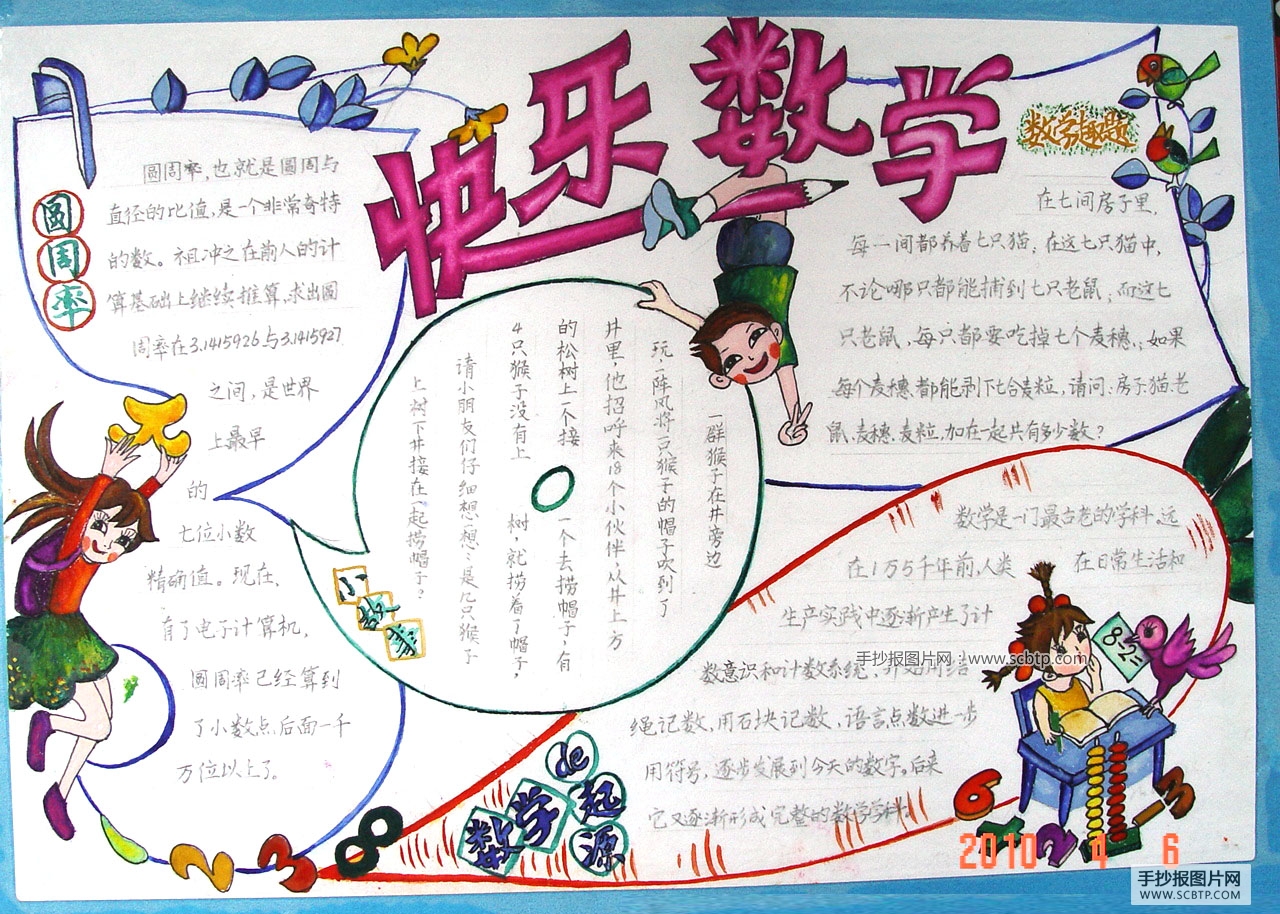 快乐数学
圆周率
圆周率,也就是圆周与
直径的比值,是一个非常奇特
的数。祖冲之在前人的计
算基础上继续推算,求出圆
周率在3.1415926与3.1415927
之间,是世界
上最早
的
七位小数
精确值。现在,
有了电子计算机,
圆周率已经算到
了小数点后面一千
万位以上了。
小故事
一群猴子在井旁边
玩,一阵风将一只猴子的帽子吹到了
井里,他招呼来18个小伙伴,从井上方
的松树上一个接一个去捞帽子,有
4只猴子没有上树,就捞着了帽子,
请小朋友们仔细想一想:是几只猴子
上树下井接在一起捞帽子?
数字趣题
在七间房子里,
每一间都养着七只猫,在这七只猫中,
不论哪只都能捕到七只老鼠;而这七
只老鼠,每只都要吃掉七个麦穗,;如果
每个麦穗都能剥下七合麦粒,请问:房子.猫.老
鼠.麦穗.麦粒,加在一起共有多少数?
数学de起源
数学是一门最古老的学科。远
在1万5千年前,人类 在日常生活和
生产实践中逐渐产生了计
数意识和计数系统,开始用结
绳记数,用石块记数,语言点数进一步
用符号,逐步发展到今天的数字。后来
它又逐渐形成完整的数学学科。
手抄报图片网:www.scbtp.com
8÷2=
2 3 8
6 1 2 4 3
2010 4 6
手抄报图片网
WWW.SCBTP.COM